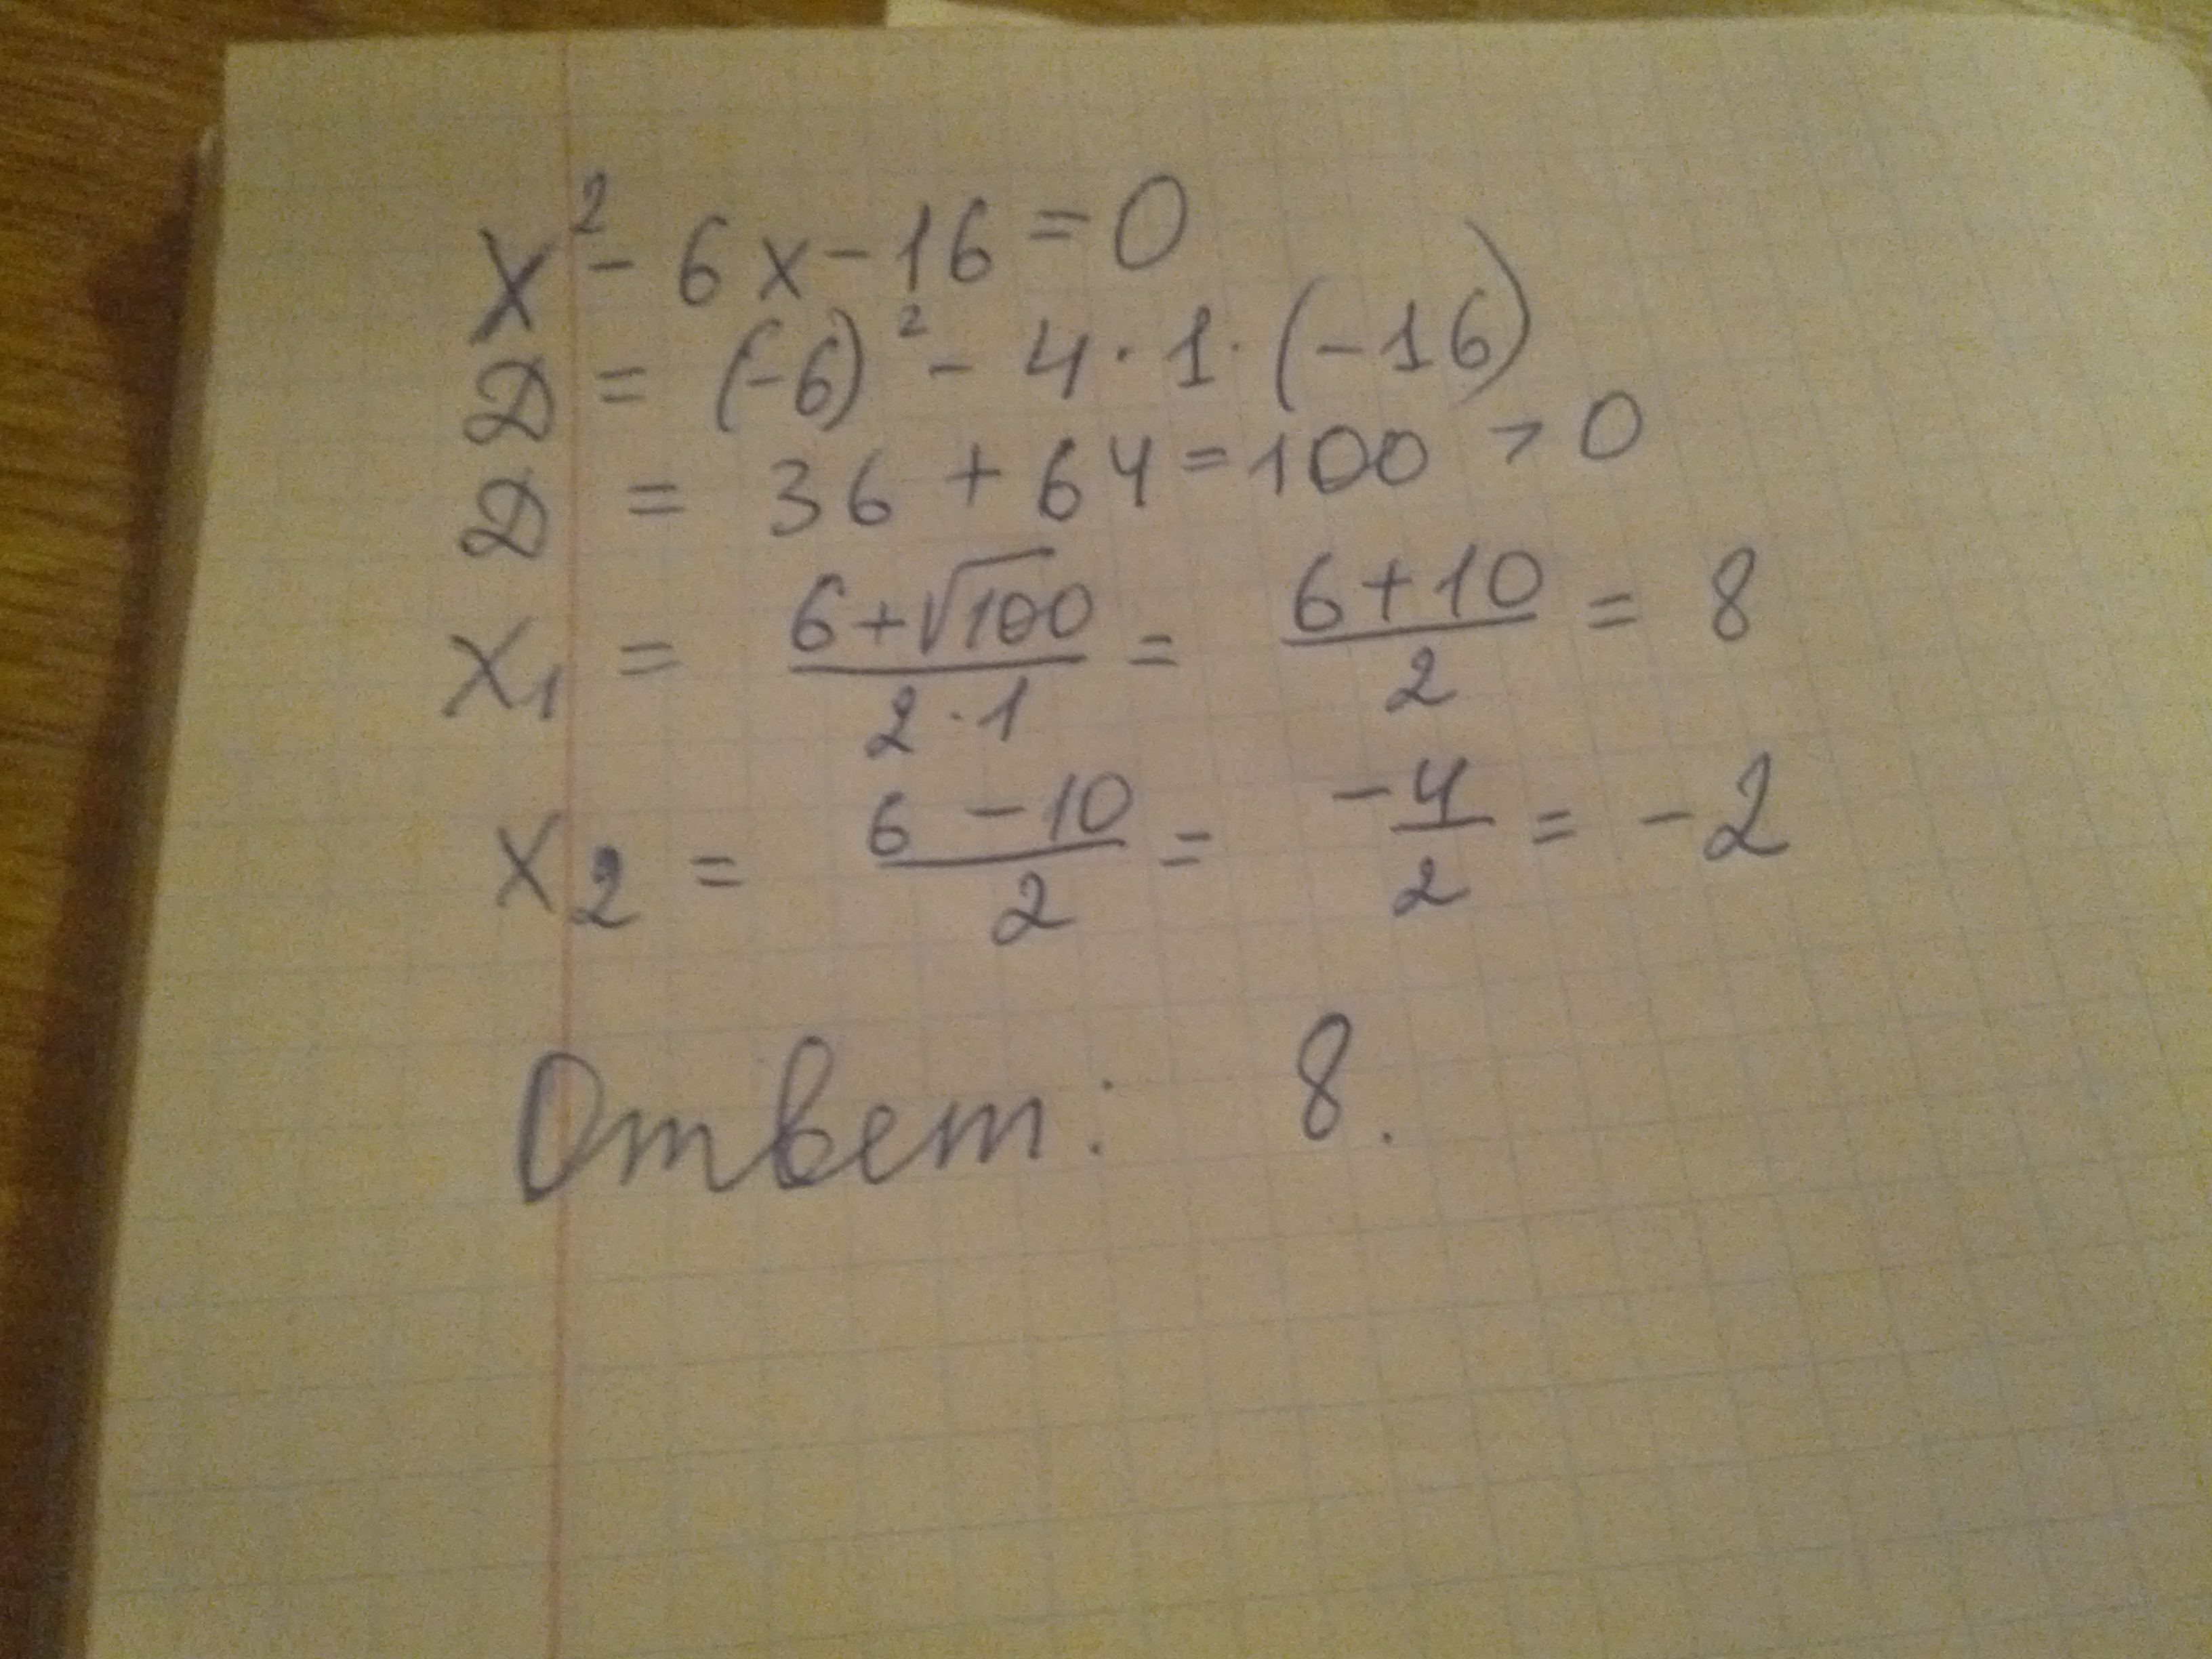 x² - 6x - 16 = 0
D = (-6)² - 4 · 1 · (-16)
D = 36 + 64 = 100 > 0
x₁ = (6 + √100)/(2 · 1) = (6 + 10)/2 = 8
x₂ = (6 - 10)/2 = -4/2 = -2
Ответ: 8.